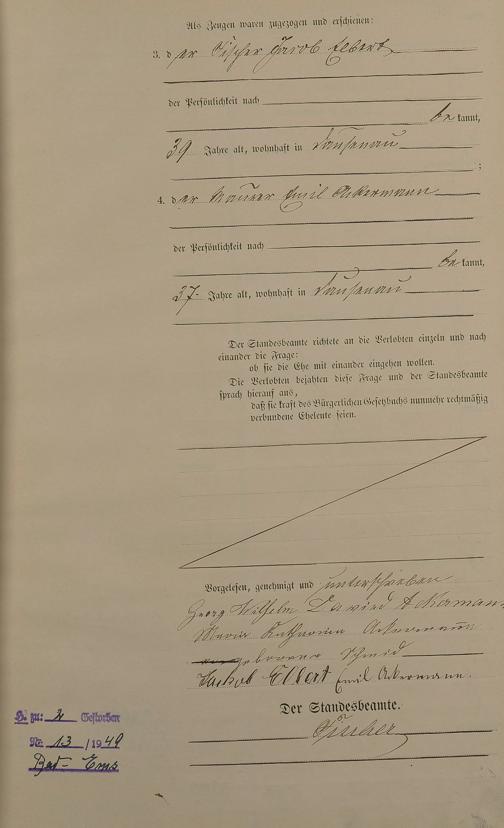 Als Zeugen waren zugezogen und erschienen:
3. der Fischer Jacob Elbert
der Persönlichkeit nach
bekannt,
39 Jahre alt, wohnhaft in Dausenau
;
4. der Maurer Emil Ackermann
der Persönlichkeit nach
bekannt,
27 Jahre alt, wohnhaft in Dausenau
Der Standesbeamte richtete an die Verlobten einzeln und nach
einander die Frage:
ob sie die Ehe mit einander eingehen wollen.
Die Verlobten bejahten diese Frage und der Standesbeamte
sprach hierauf aus,
daß sie kraft des Bürgerlichen Gesetzbuchs nunmehr rechtmäßig
verbundene Eheleute seien.
Vorgelesen, genehmigt und unterschrieben
Georg Wilhelm David Ackermann
Maria Katharina Ackermann
geborene Schmid
Jackob Elbert Emil Ackermann.
Der Standesbeamte.
Fischer
H. zu: 2 Gestorben
Nr. 13 / 1949
Bad-Ems